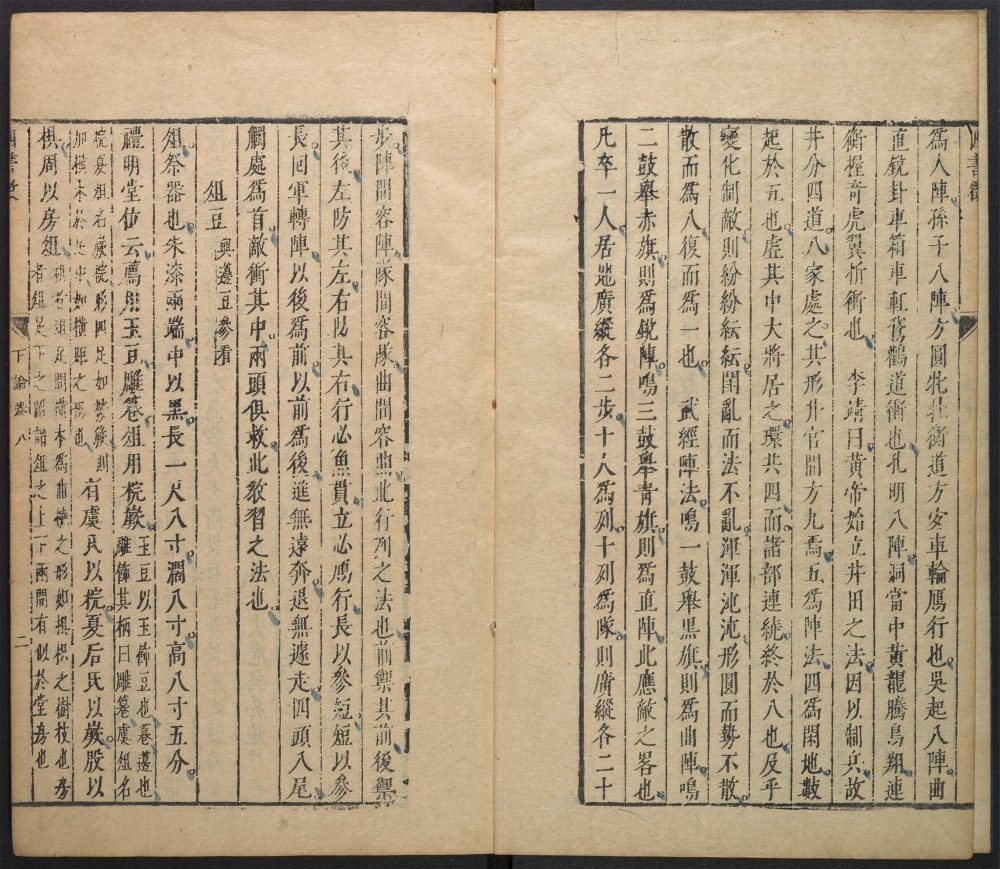 爲人陣孫子八陣方圓牝牡衝道方安車輪鴈行也吳起八陣曲
直銳針車箱車䡖鵞鸛道衝也孔明八陣洞當中黃龍騰鳥翔連
衝握奇虎翼折衝也 李靖曰黃帝始立井田之法因以制兵故
井分四道八家處之其形井官開方九焉五爲陣法四爲閑地
起於五也虛其中大將居之環其四面諸部連繞終於八也及乎
變化制敵則紛紛紜紜鬪亂而法不亂渾渾沌沌形圓而勢不散
散而爲八復而爲一也 武經陣法鳴一鼓舉黑旗則爲曲陣鳴
二鼓舉赤旗則爲銳陣鳴三鼓舉青旗則爲直陣此應敵之畧也
凡卒一人居地廣縱各二步十人爲列十列爲隊則廣縱各二十
步陣間容陣隊間容隊曲間容曲此行列之法也前禦其前後禦
其後左防其左右防其右行必魚貫立必鴈行長以參短短以參
長回軍轉陣以後爲前以前爲後進無遠奔退無遽走四頭八尾
觸處爲首敵衝其中兩頭俱救此敎習之法也
俎豆 與籩豆參看
俎祭器也朱漆兩端中以黑長一尺八寸濶八寸高八寸五分
禮明堂位云薦用玉豆雕篹俎用梡嶡
玉豆以玉飾豆也篹籩也
雕飾其柄曰雕篹虞俎名
梡夏俎名嶡梡形四足如案嶡則
加橫木於足中如橫距之形也
有虞氏以梡夏后氏以嶡殷以
椇周以房俎
椇者俎足間橫木爲曲橈之形如椇枳之樹枝也房
者俎足下之跗謂俎之上下兩間有似於堂房也
下論卷八
二